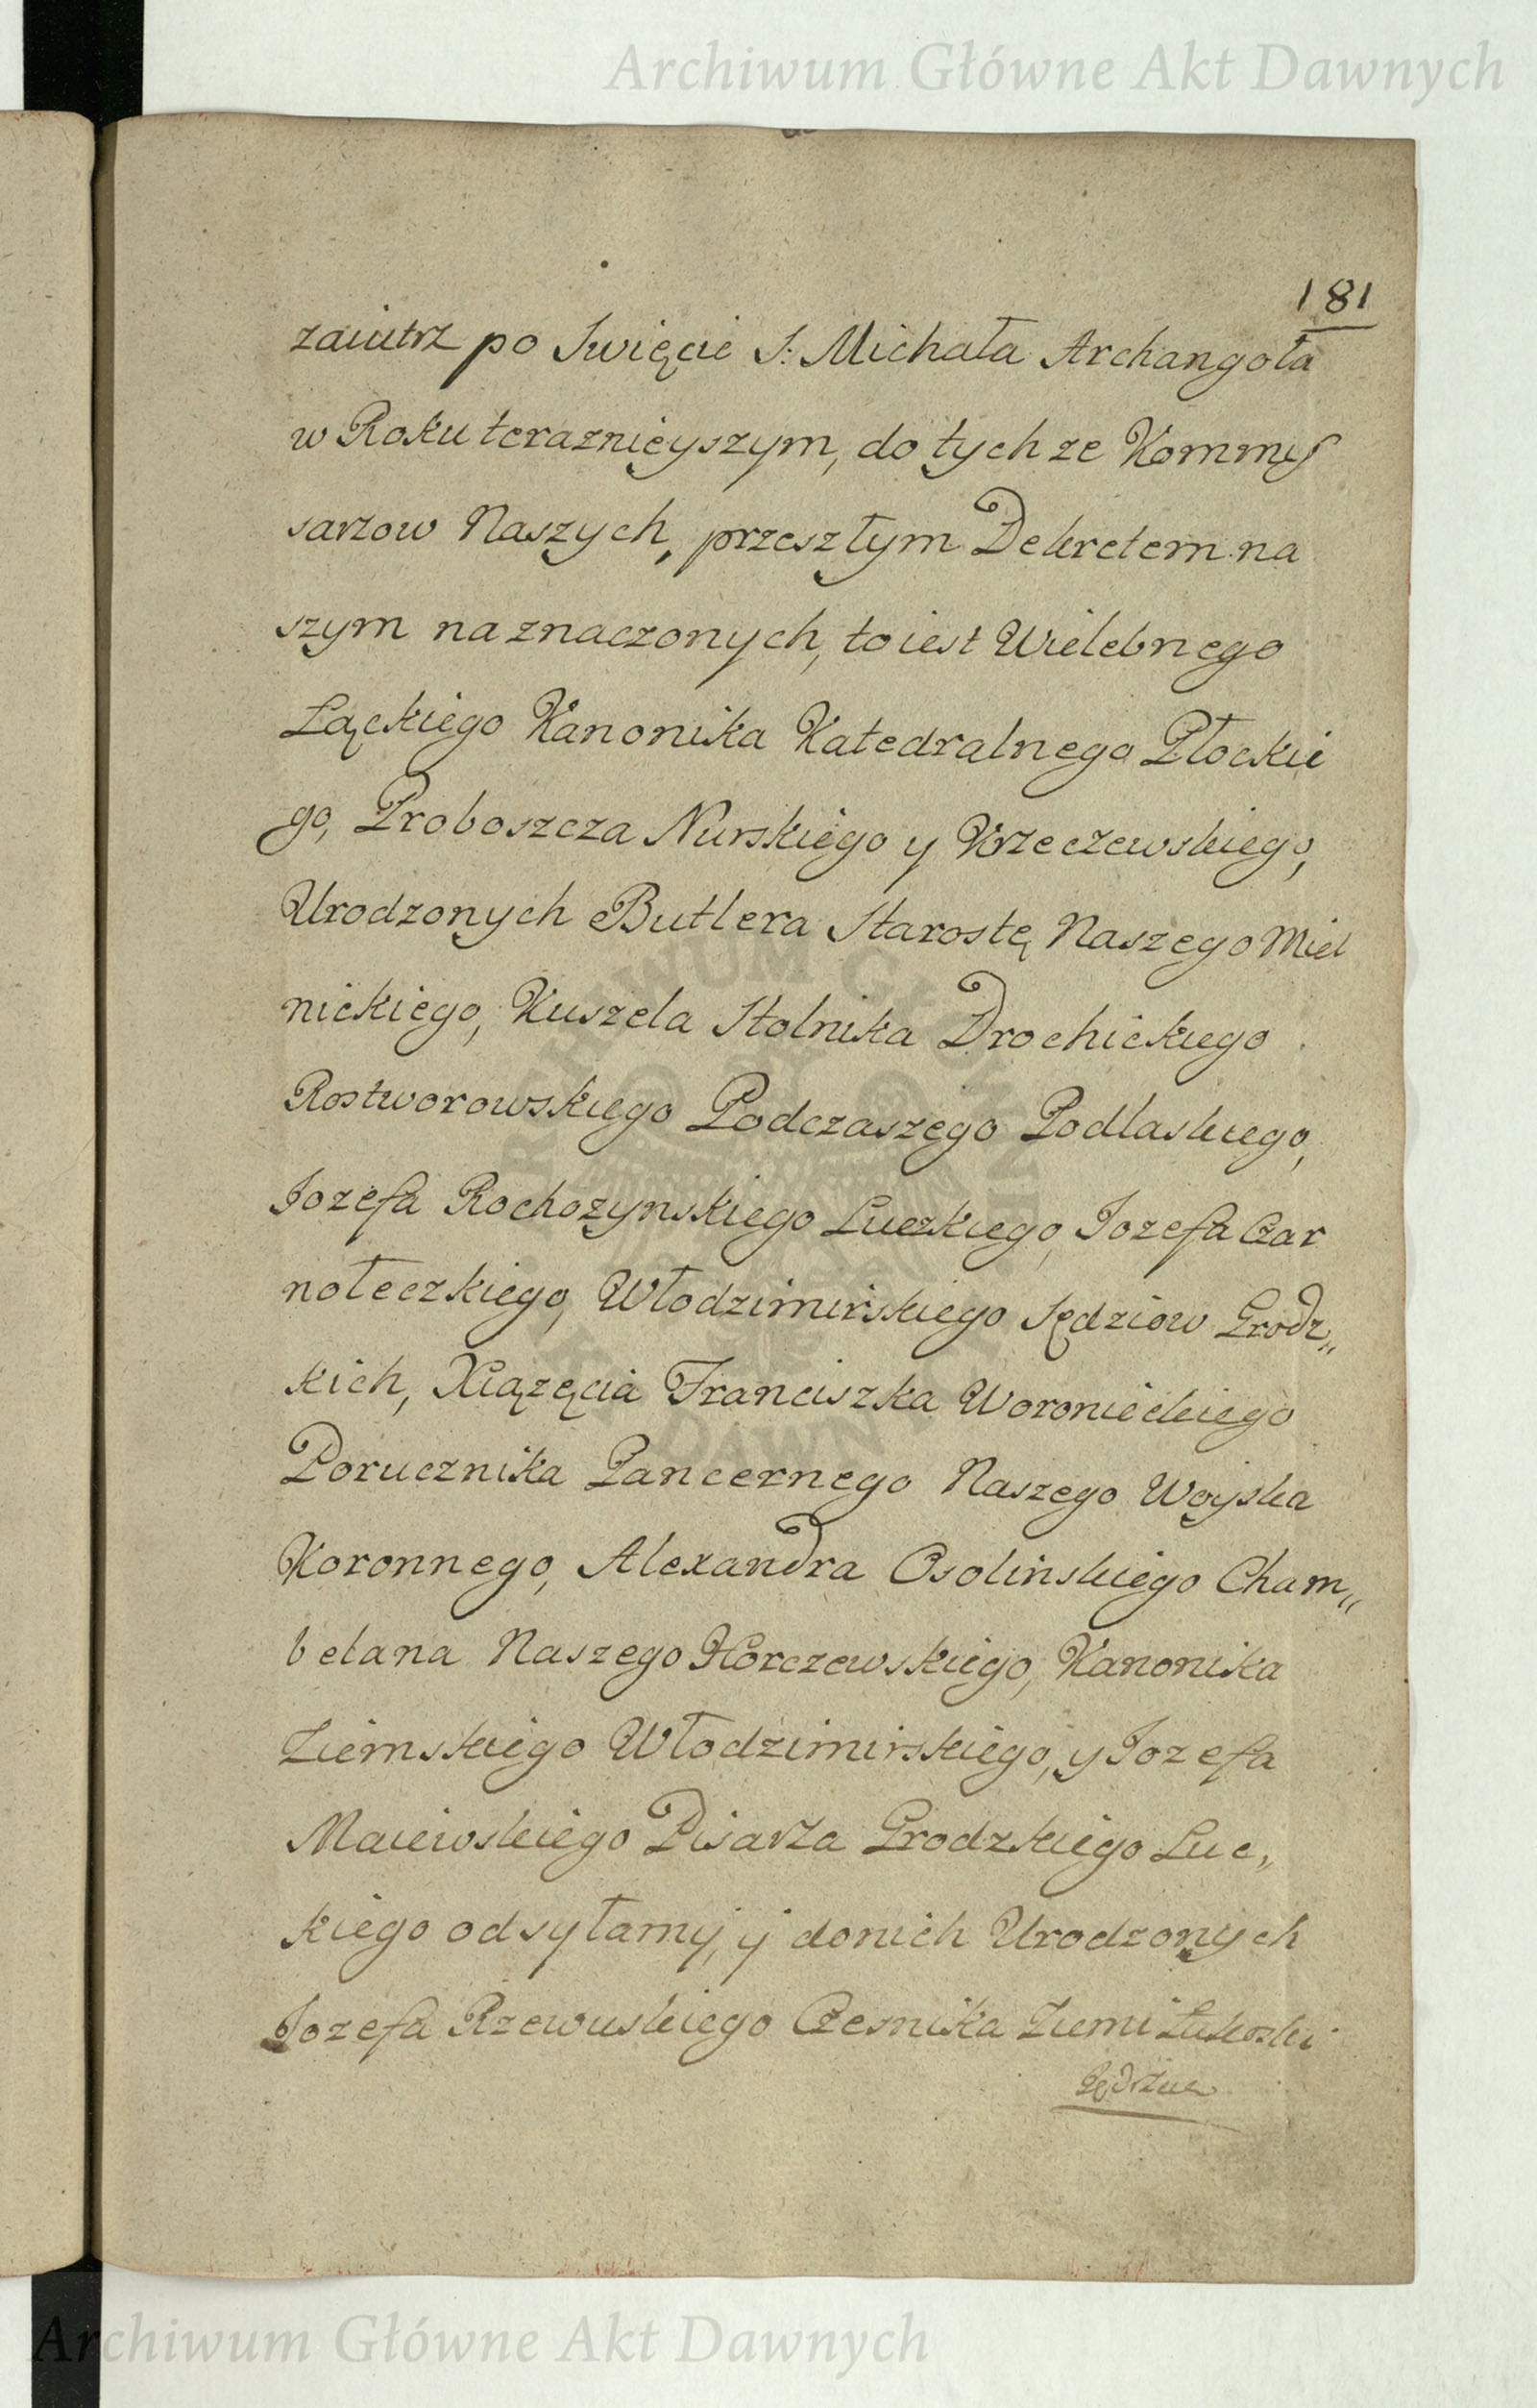 Archiwum Główne Akt Dawnych
181
zaiutrz po Swięcie S: Michała Archangoła
w Roku teraznieyszym, do tych ze Kommys
sarzow Naszych, przeszłym Dekretem na
szym naznaczonych, to iest Wielebnego
Łąckiego Kanonika Katedralnego Płockie
go, Proboszcza Nurskiego y Wrzeczewskiego,
Urodzonych Butlera Starostę Naszego Miel
nickiego, Kuszela Stolnika Drochickiego
Rostworowskiego Podczaszego Podlaskiego,
Jozefa Rochozynskiego Luczkiego, Jozefa Czar
nołeczkiego, Włodzimirskiego Sędziow Grodz„
kich, Xiązęcia Franciszka Woronieckiego
Porucznika Pancernego Naszego Woyska
Koronnego, Alexandra Osolinskiego Cham„
belana Naszego Horczewskiego, Kanonika
Ziemskiego Włodzimirskiego, y Jozefa
Maiewskiego Pisarza Grodzkiego Luc„
kiego odsyłamy, y donich Urodzonych
Jozefa Rzewuskiego Czesnika Ziemi Łukoski
Archiwum Główne Akt Dawnych